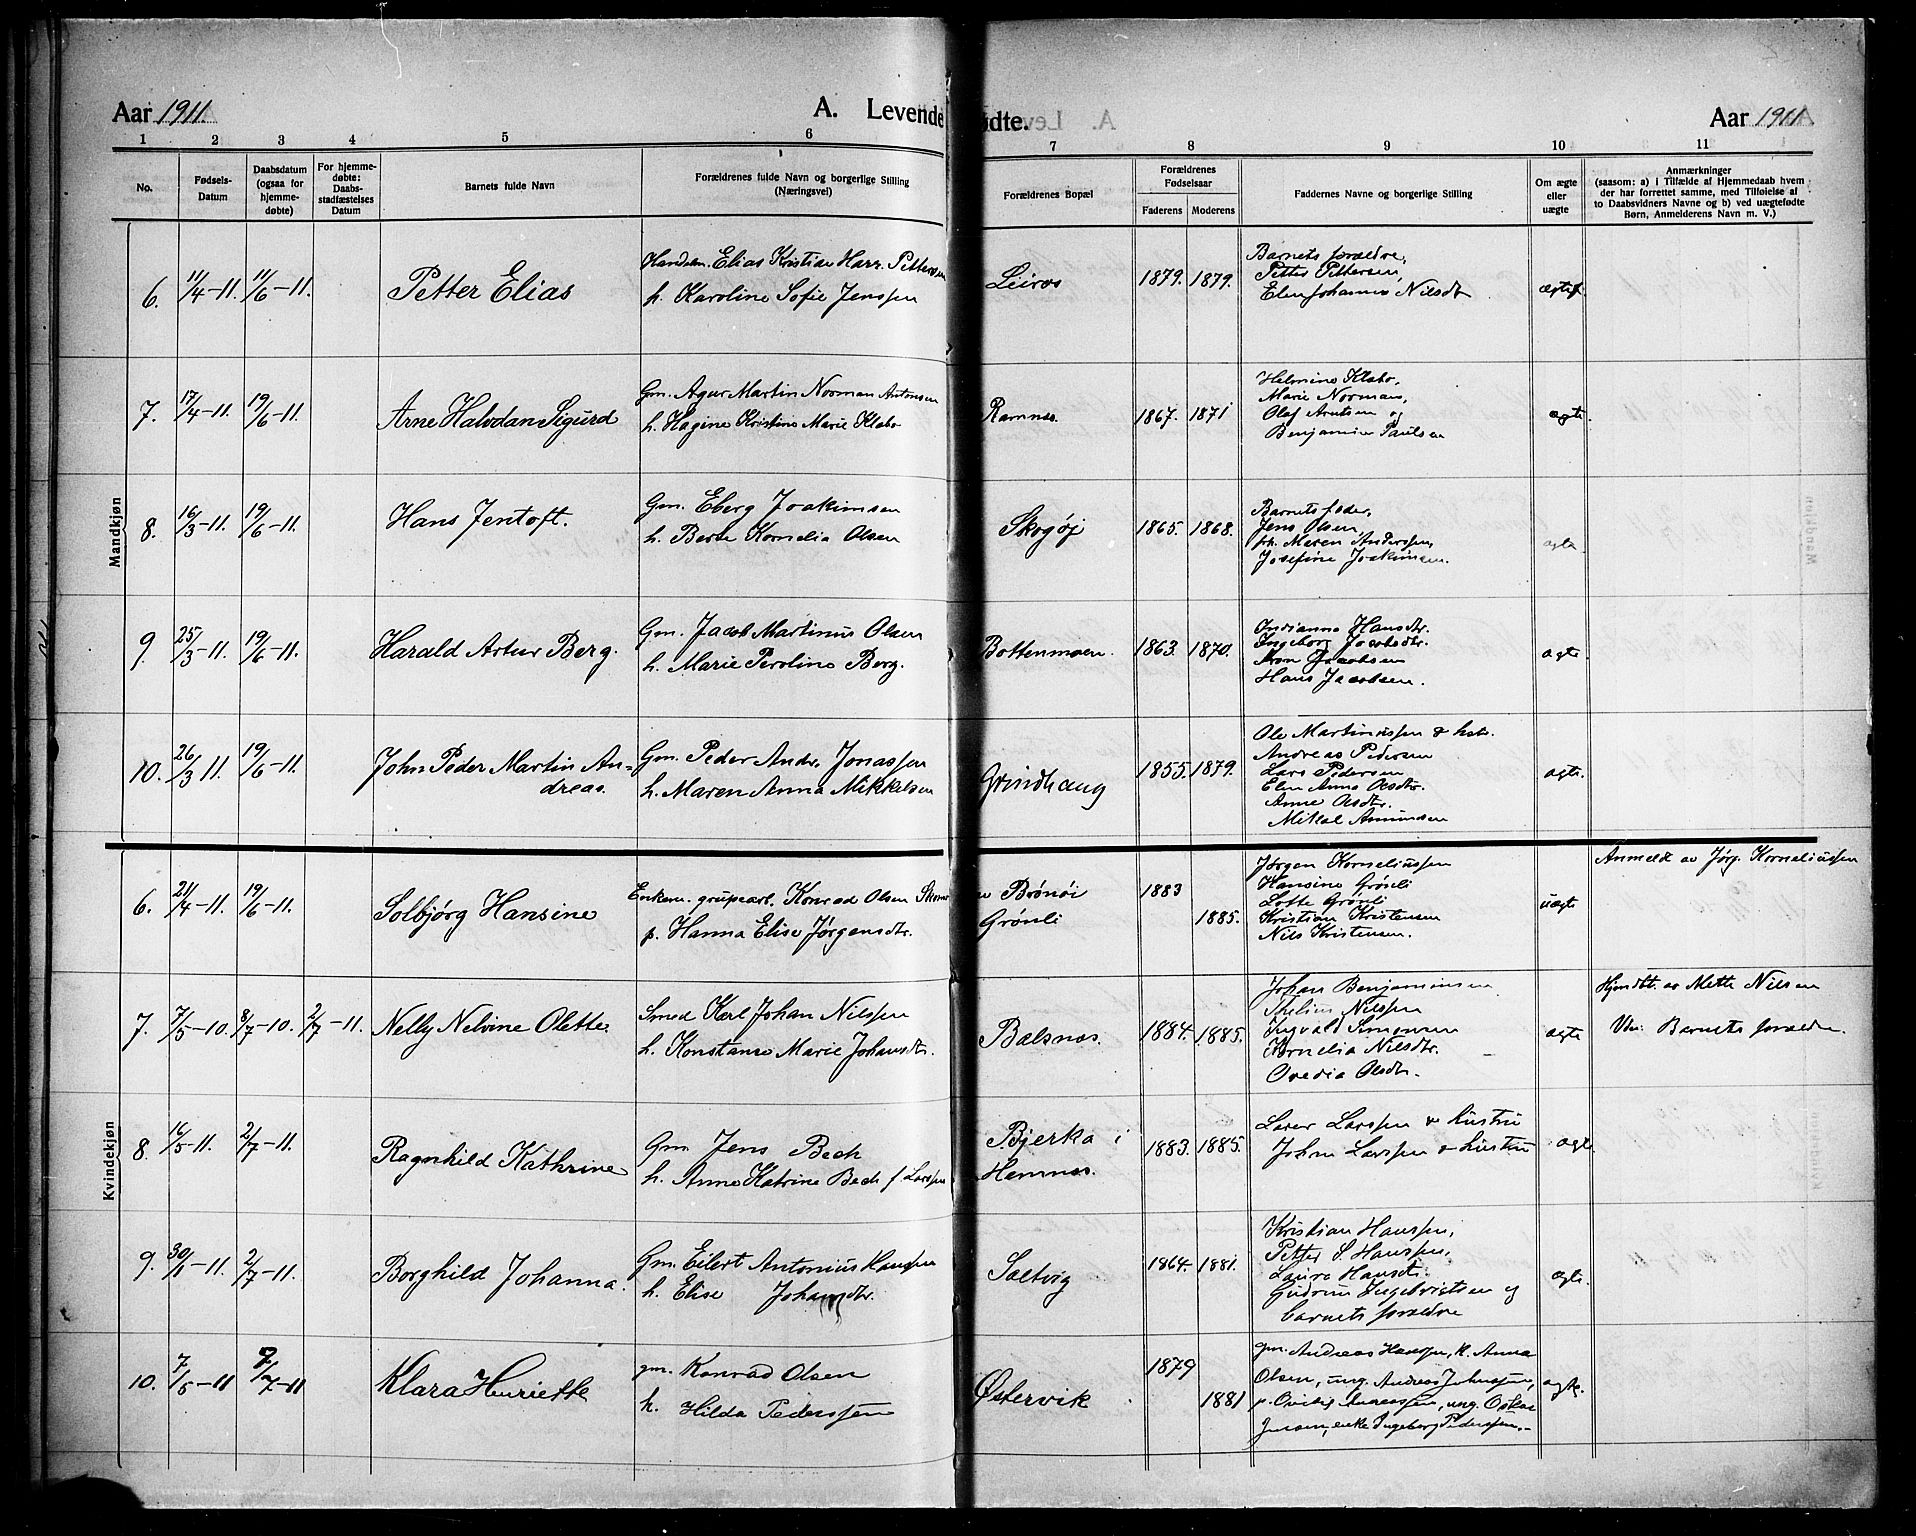 Aar 1911.
A. Levende
ødte.
Aar 1911.
1 2 3 4 5 6
7 8 9 10 11
No.
Fødsels-
Datum
Daabsdatum
(ogsaa for
hjemme-
døbte)
For hjemme-
døbte:
Daabs-
stadfæstelses
Datum
Barnets fulde Navn
Forældrenes fulde Navn og borgerlige Stilling
(Næringsvei)
Forældrenes Bopæl
Forældrenes
Fødselsaar
Faderens
Moderens
Faddernes Navne og borgerlige Stilling
Om ægte
eller
uægte
Anmærkninger
(saasom: a) i Tilfælde af Hjemmedaab hvem
der har forrettet samme, med Tilføielse af
to Daabsvidners Navne og b) ved uægtefødte
Børn, Anmelderens Navn m. V.)
Mandkjøn
6. 11/4-11. 11/6-11.
Petter Elias
Handelm. Elias Kristian Pettersen
h. Karoline Sofie Jenssen
Leiros
1879. 1879.
Barnets forældre,
Petter Pettersen,
Elen Johanna Nilsdtr
ægte
7. 17/4-11. 19/6-11.
Arne Halvdan Sigurd
Gm. Agur Martin Norman Antonsen
h. Hagine Kristine Marie Klabo
Ramnes.
1867. 1871
Helmine Klabo,
Marie Norman,
Olaf Arntsen og
Benjamin Paulsen
ægte
8. 16/3-11. 19/6-11.
Hans Jentoft.
Gm. Eberg Joakimsen
h. Berte Kornelia Olsen
Skogøj
1865. 1868.
Barnets fader,
Jens Olsen,
Maren Anderssen,
Josefine Joakimsen.
ægte
9. 25/3-11. 19/6-11.
Harald Artur Berg.
Gm. Jacob Martinus Olsen
h. Marie Peroline Berg.
Bottenmoen.
1863. 1870.
Indianna Hansdtr.
Ingeborg Jacobsdtr.
Aron Jacobsen
Hans Jacobsen.
ægte
10. 26/3 11. 19/6-11.
John Peder Martin An-
dreas.
Gm. Peder Andr. Jonassen
h. Maren Anna Mikkelsen
Grindhaug
1855. 1879.
Ole Martinussen & hstr.
Andreas Pedersen
Lars Pedersen
Elen Anna Olsdtr.
Anne Olsdtr.
Mikal Amundsen
ægte.
Kvindekjøn
6. 21/4-11. 19/6-11.
Solbjørg Hansine
Enkem. grupearb. Konrad Olsen
p. Hanna Elise Jørgensdtr.
Brønøi
Grønli
1883
1885.
Jørgen Korneliussen
Hansine Grønli
Lotte Grønli
Kristian Kristensen
Nils Kristensen.
uægte
Anmeldt av Jørg. Korneliussen
7. 7/5-10. 8/7-10. 2/7-11.
Nelly Nelvine Olette
Smed Karl Johan Nilssen
h. Konstanse Marie Johansdtr.
Balsnes.
1884. 1885.
Johan Benjaminsen
Thelius Nilssen
Ingvald Simonsen
Kornelia Nilsdtr.
Ovedia Olsdtr.
ægte
Hjmdbt. av Mette Nilsen
Vdn: Barnets forældre.
8. 16/5-11. 2/7-11.
Ragnhild Kathrine
Gm. Jens Bech
h. Anne Katrine Bech f. Larssen
Bjerka i
Hemnes.
1883. 1885.
Larer Larssen & hustru
Johan Larssen & hustru
ægte
9. 2/7-11.
Borghild Johanna.
Gm. Eilert Antonius Hanssen
h. Elise Johansdtr.
Saltvig
1864. 1881.
Kristian Hanssen,
Petter S. Hanssen,
Laura Hansdtr.
Gudrun Ingebrigtsen og
barnets forældre
ægte.
10. 7/5-11 9/7-11
Klara Henriette
gm. Konrad Olsen
h. Hilda Pederssen
Østervik
1879
1881
gm. Andreas Hanssen, k. Anna
Olsen, ung. Andreas Johnssen,
ung. Oskar
Jensen, enke Ingeborg Pederssen.-
ægte.